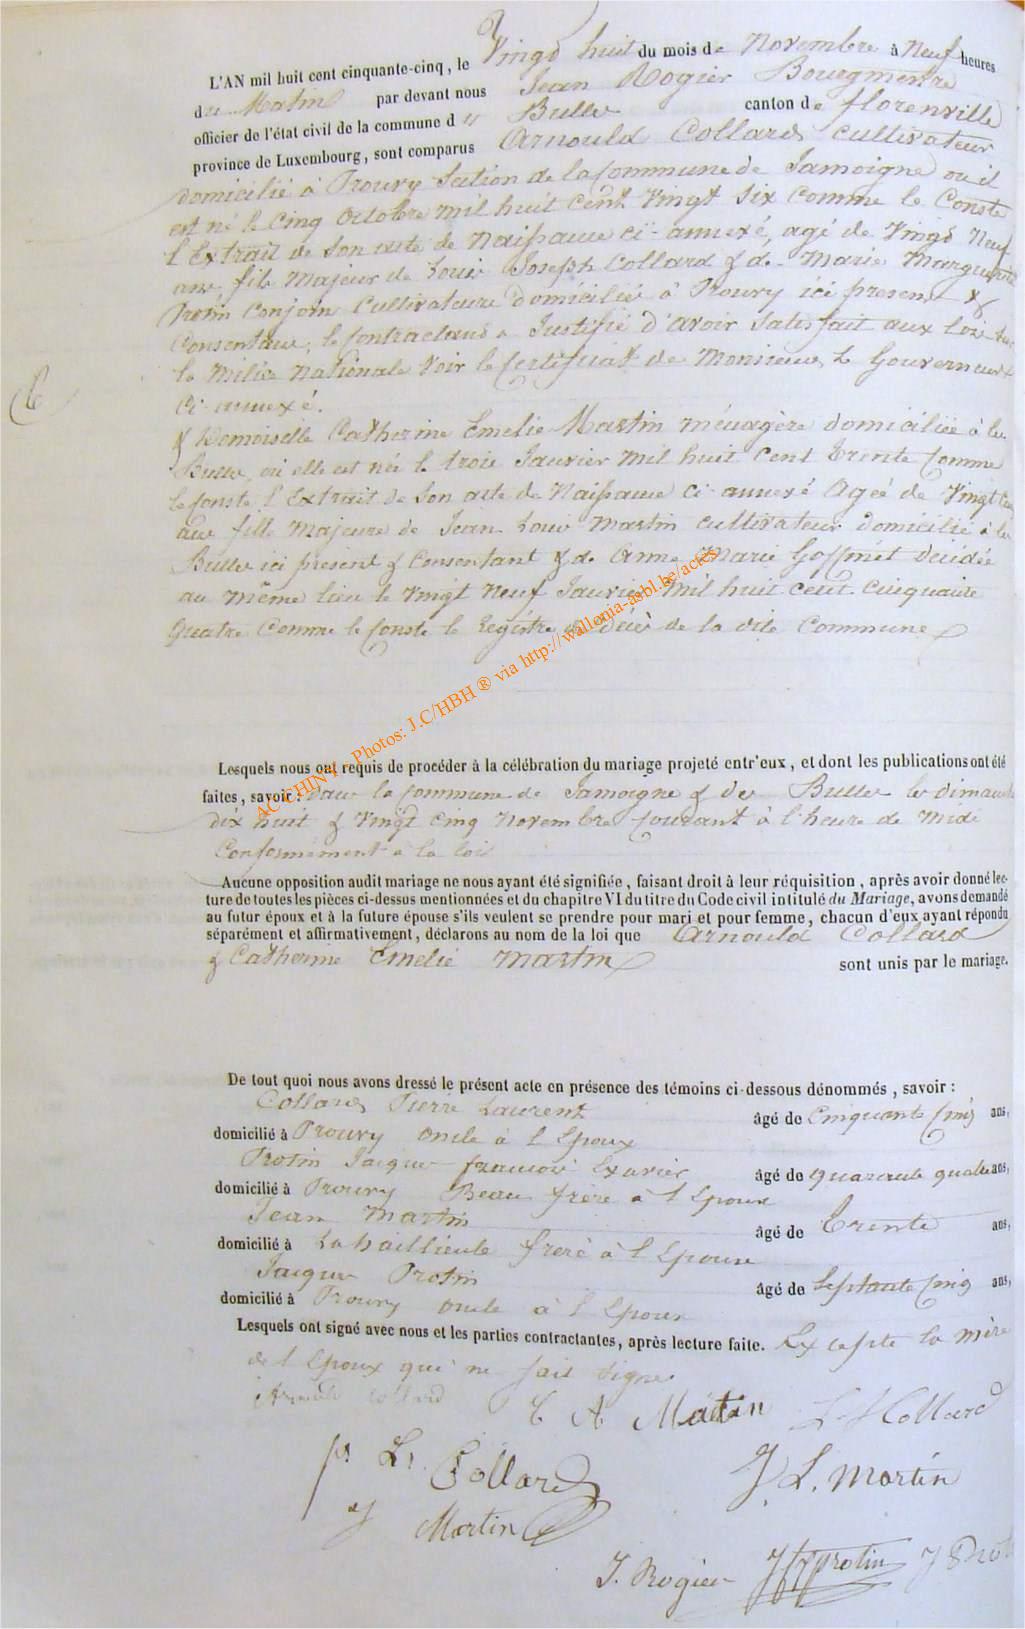 L'AN mil huit cent cinquante-cinq, le Vingt huit du mois de Novembre à Neuf heures
du Matin par devant nous Jean Rogier Bourgmestre
officier de l'état civil de la commune d " Bulle canton de florenville
province de Luxembourg, sont comparus Arnould Collard cultivateur
domicilié à Prouvy Section de la Commune de Jamoigne où il
est né le Cinq Octobre mil huit Cent Vingt Six Comme le Conste
l'Extrait de Son acte de Naissance ci-annexé, agé de Vingt Neuf
ans, fils Majeur de Louis Joseph Collard & de Marie Marguerite
Protin Conjoin Cultivateurs domiciliés à Prouvy ici present &
Consentans, le Contractant a Justifié d'avoir Satisfait aux Lois sur
la milice Nationale Voir le Certificat de Monsieur Le Gouverneur
Ci-annexé.
& Demoiselle Catherine Emelie Martin ménagère domiciliée à les
Bulles, où elle est née le trois Janvier mil huit Cent Trente Comme
le Conste l'Extrait de Son acte de Naissance ci-annexé Ageé de Vingt Cinq
ans fille Majeure de Jean Louis Martin cultivateur domicilié à les
Bulles ici present & Consentant & de Anne Marie Goffinet decidée
au même lieu le Vingt Neuf Janvier mil huit Cent Cinquante
Quatre Comme le Conste le Registre de décès de la dite Commune
AC CHINY - Photos: J.C/HBH ® via http://wallonia-asbl.be/actes
Lesquels nous ont requis de procéder à la célébration du mariage projeté entr'eux, et dont les publications ont été
faites, savoir: dans la Commune de Jamoigne & des Bulles les dimanche
dix huit & Vingt Cinq Novembre Courant à l'heure de Midi
Conformément à la loi
Aucune opposition audit mariage ne nous ayant été signifiée, faisant droit à leur réquisition, après avoir donné lec-
ture de toutes les pièces ci-dessus mentionnées et du chapitre VI du titre du Code civil intitulé du Mariage, avons demandé
au futur époux et à la future épouse s'ils veulent se prendre pour mari et pour femme, chacun d'eux ayant répondu
séparément et affirmativement, déclarons au nom de la loi que Arnould Collard
& Catherine Emelie Martin sont unis par le mariage.
De tout quoi nous avons dressé le présent acte en présence des témoins ci-dessous dénommés, savoir :
Collard Pierre Laurent âgé de Cinquante Cinq ans,
domicilié à Prouvy oncle à l'Epoux
Protin Jacques francois Exavier âgé de quarante quatre ans,
domicilié à Prouvy Beau frère à l'Epoux
Jean Martin âgé de Trente ans,
domicilié à La haillieule frere à l'Epouse
Jacques Protin âgé de Septante Cinq ans,
domicilié à Prouvy oncle à l'Epoux
Lesquels ont signé avec nous et les parties contractantes, après lecture faite. Excepte la mère
de l'Epoux qui ne sait signer
Arnould Collard C A Martin L J Collard
Ps Lt Collard J. L. Martin
J Martin
J. Rogier J f x protin J Prot